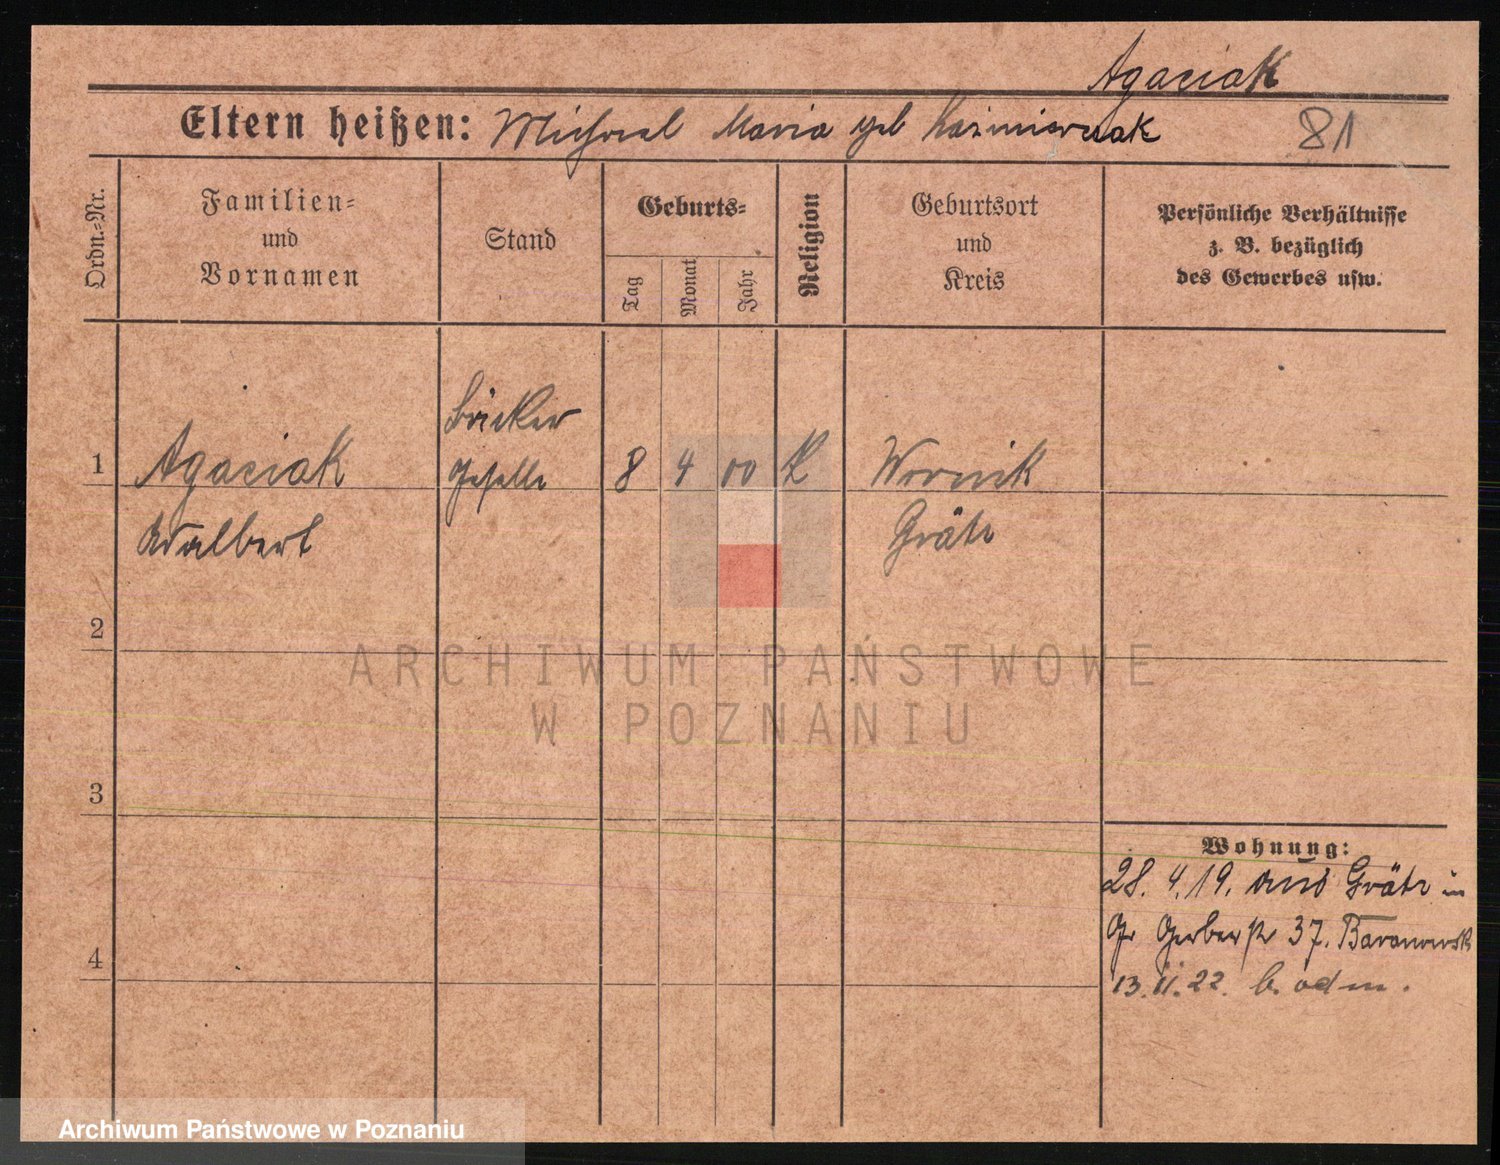 Agaciak
Eltern heißen: Michael Maria geb Kaźmierczak
81
Ordn.-Nr.
Familien-
und
Vornamen
Stand
Geburts-
Tag
Monat
Jahr
Religion
Geburtsort
und
Kreis
Persönliche Verhältnisse
z. B. bezüglich
des Gewerbes usw.
1
Agaciak
Adalbert
Bäcker
geselle
8
4
00
K
Woznik
Grätz
2
3
4
Wohnung:
28. 4. 19. aus Grätz in
Gr Gerberstr 37. Baranowsk
13. 11. 22. b. odm.
ARCHIWUM PAŃSTWOWE
W POZNANIU
Archiwum Państwowe w Poznaniu